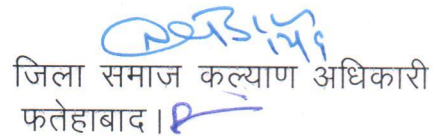 जिला समाज कल्याण अधिकारी
फतेहाबाद।